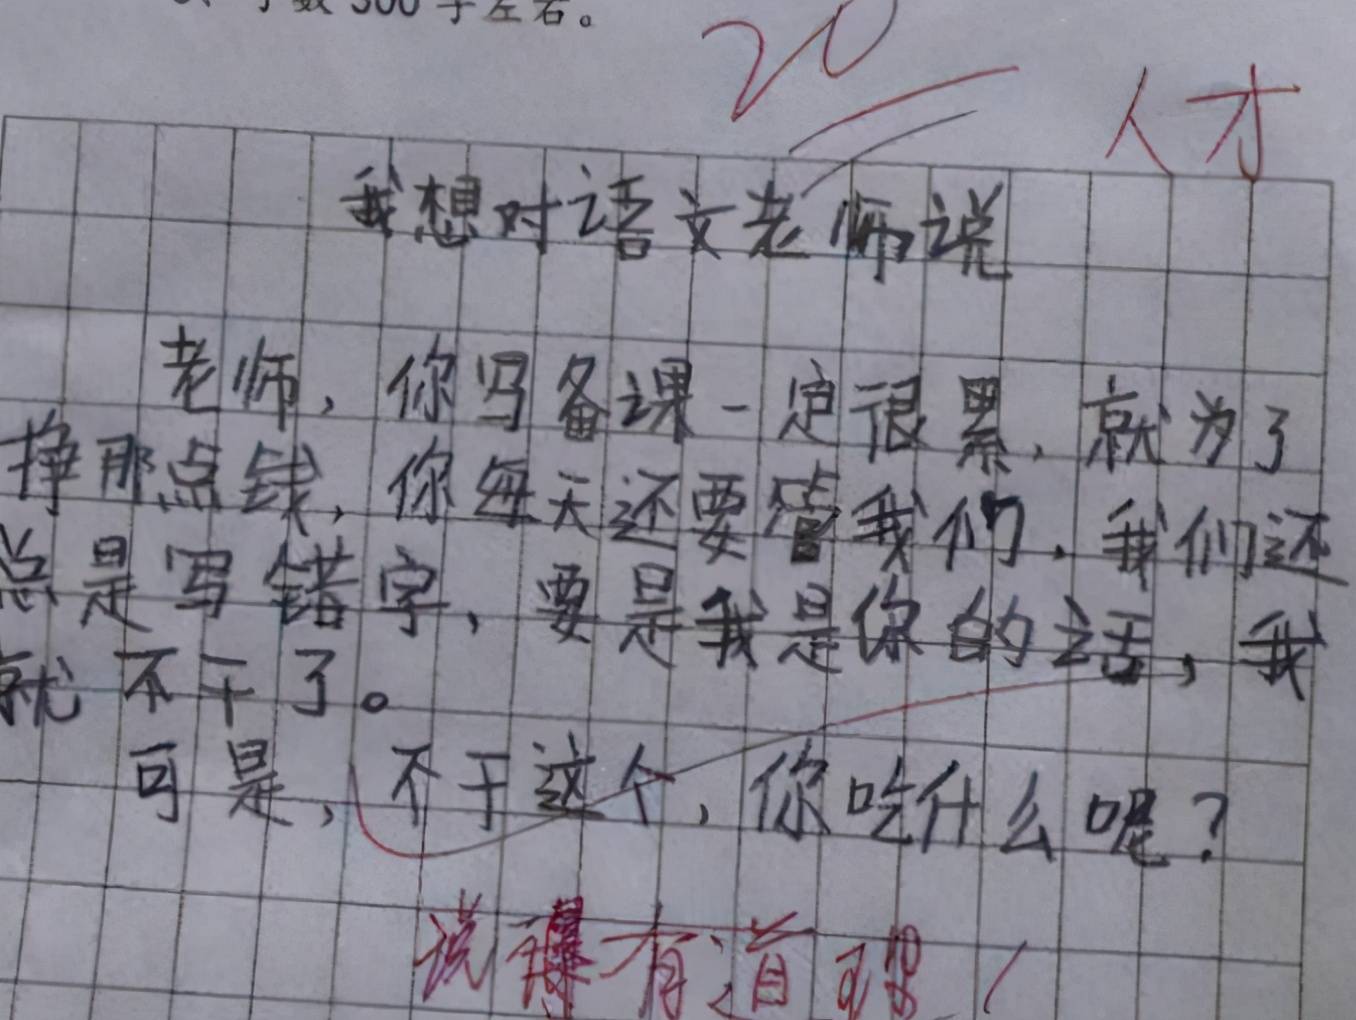 字数300字左右。
20
人才
我想对语文老师说
老师，你写备课一定很累，就为了
挣那点钱，你每天还要管我们，我们还
总是写错字，要是我是你的话，我
就不干了。
可是，不干这个，你吃什么呢？
说得有道理！